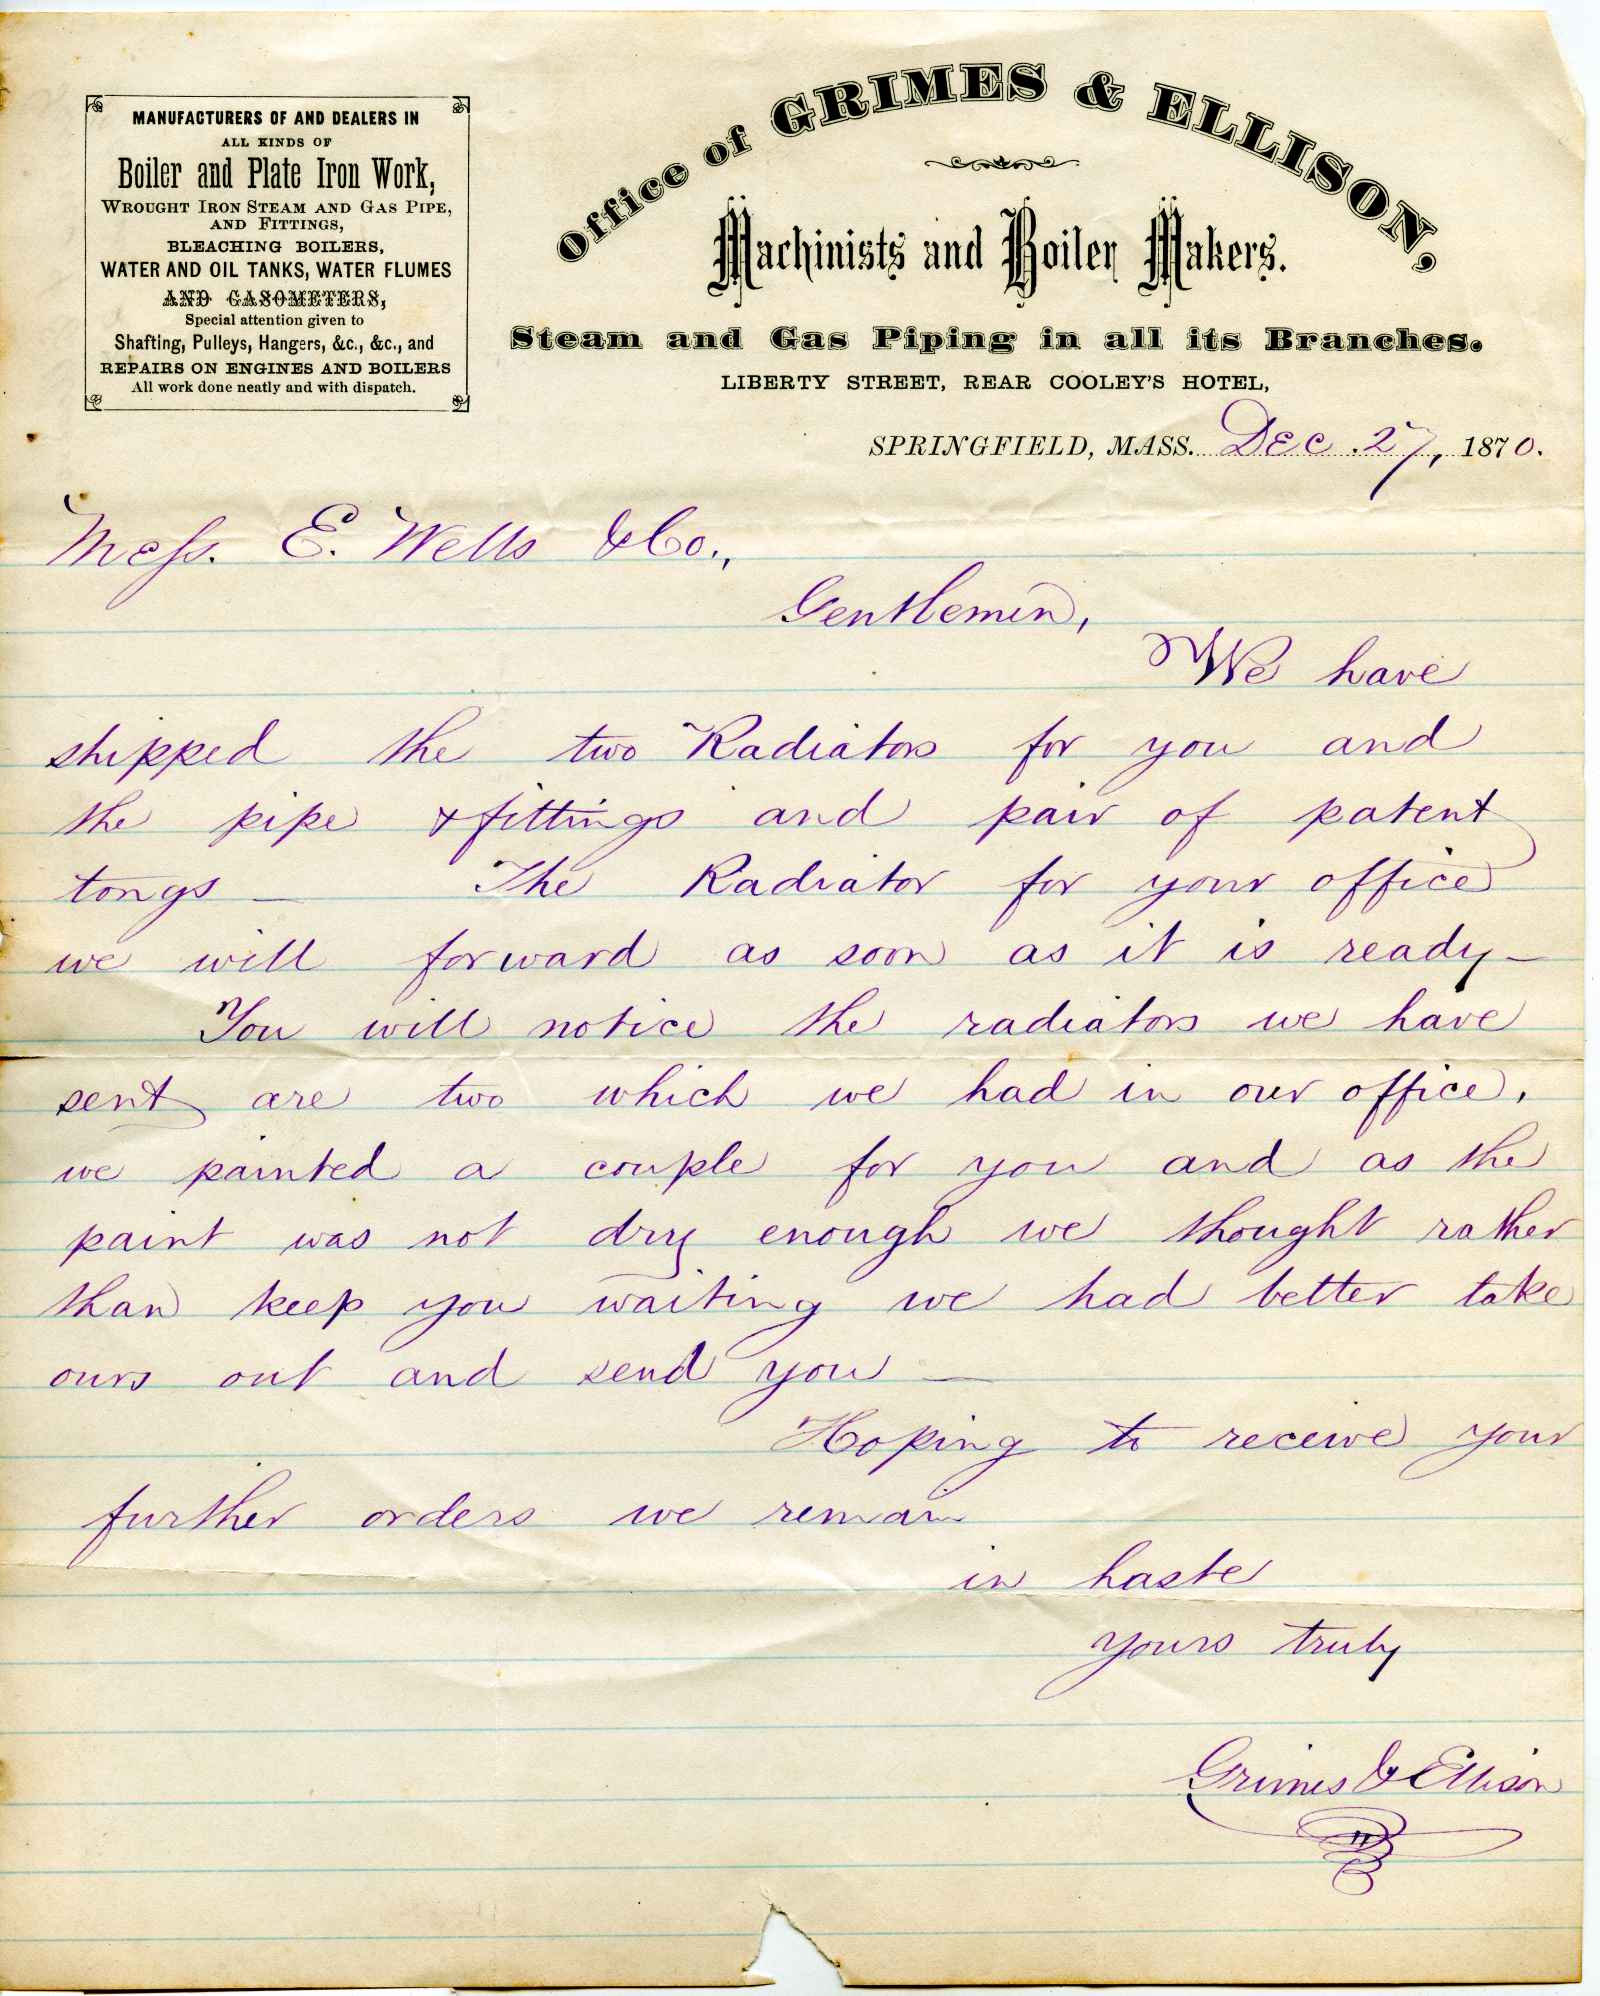 MANUFACTURERS OF AND DEALERS IN
ALL KINDS OF
Boiler and Plate Iron Work,
WROUGHT IRON STEAM AND GAS PIPE,
AND FITTINGS,
BLEACHING BOILERS,
WATER AND OIL TANKS, WATER FLUMES
AND GASOMETERS,
Special attention given to
Shafting, Pulleys, Hangers, &c., &c., and
REPAIRS ON ENGINES AND BOILERS
All work done neatly and with dispatch.
Office of GRIMES & ELLISON,
Machinists and Boiler Makers.
Steam and Gas Piping in all its Branches.
LIBERTY STREET, REAR COOLEY'S HOTEL,
SPRINGFIELD, MASS. Dec. 27, 1870.
Mess. E. Wells & Co.,
Gentlemen,
We have
shipped the two Radiators for you and
the pipe & fittings and pair of patent
tongs — The Radiator for your office
we will forward as soon as it is ready —
You will notice the radiators we have
sent are two which we had in our office,
we painted a couple for you and as the
paint was not dry enough we thought rather
than keep you waiting we had better take
ours out and send you —
Hoping to receive your
further orders we remain
in haste
yours truly
Grimes & Ellison